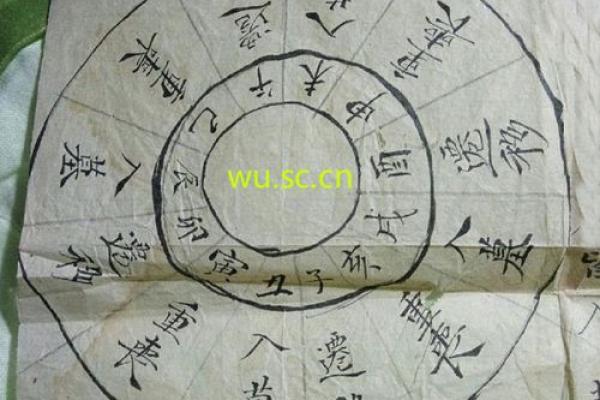 子
丑
寅
卯
辰
巳
午
未
申
酉
戌
亥
遷
入
重喪
遷移
入墓
重喪
遷
入
重喪
遷移
入墓
重喪
wu.sc.cn